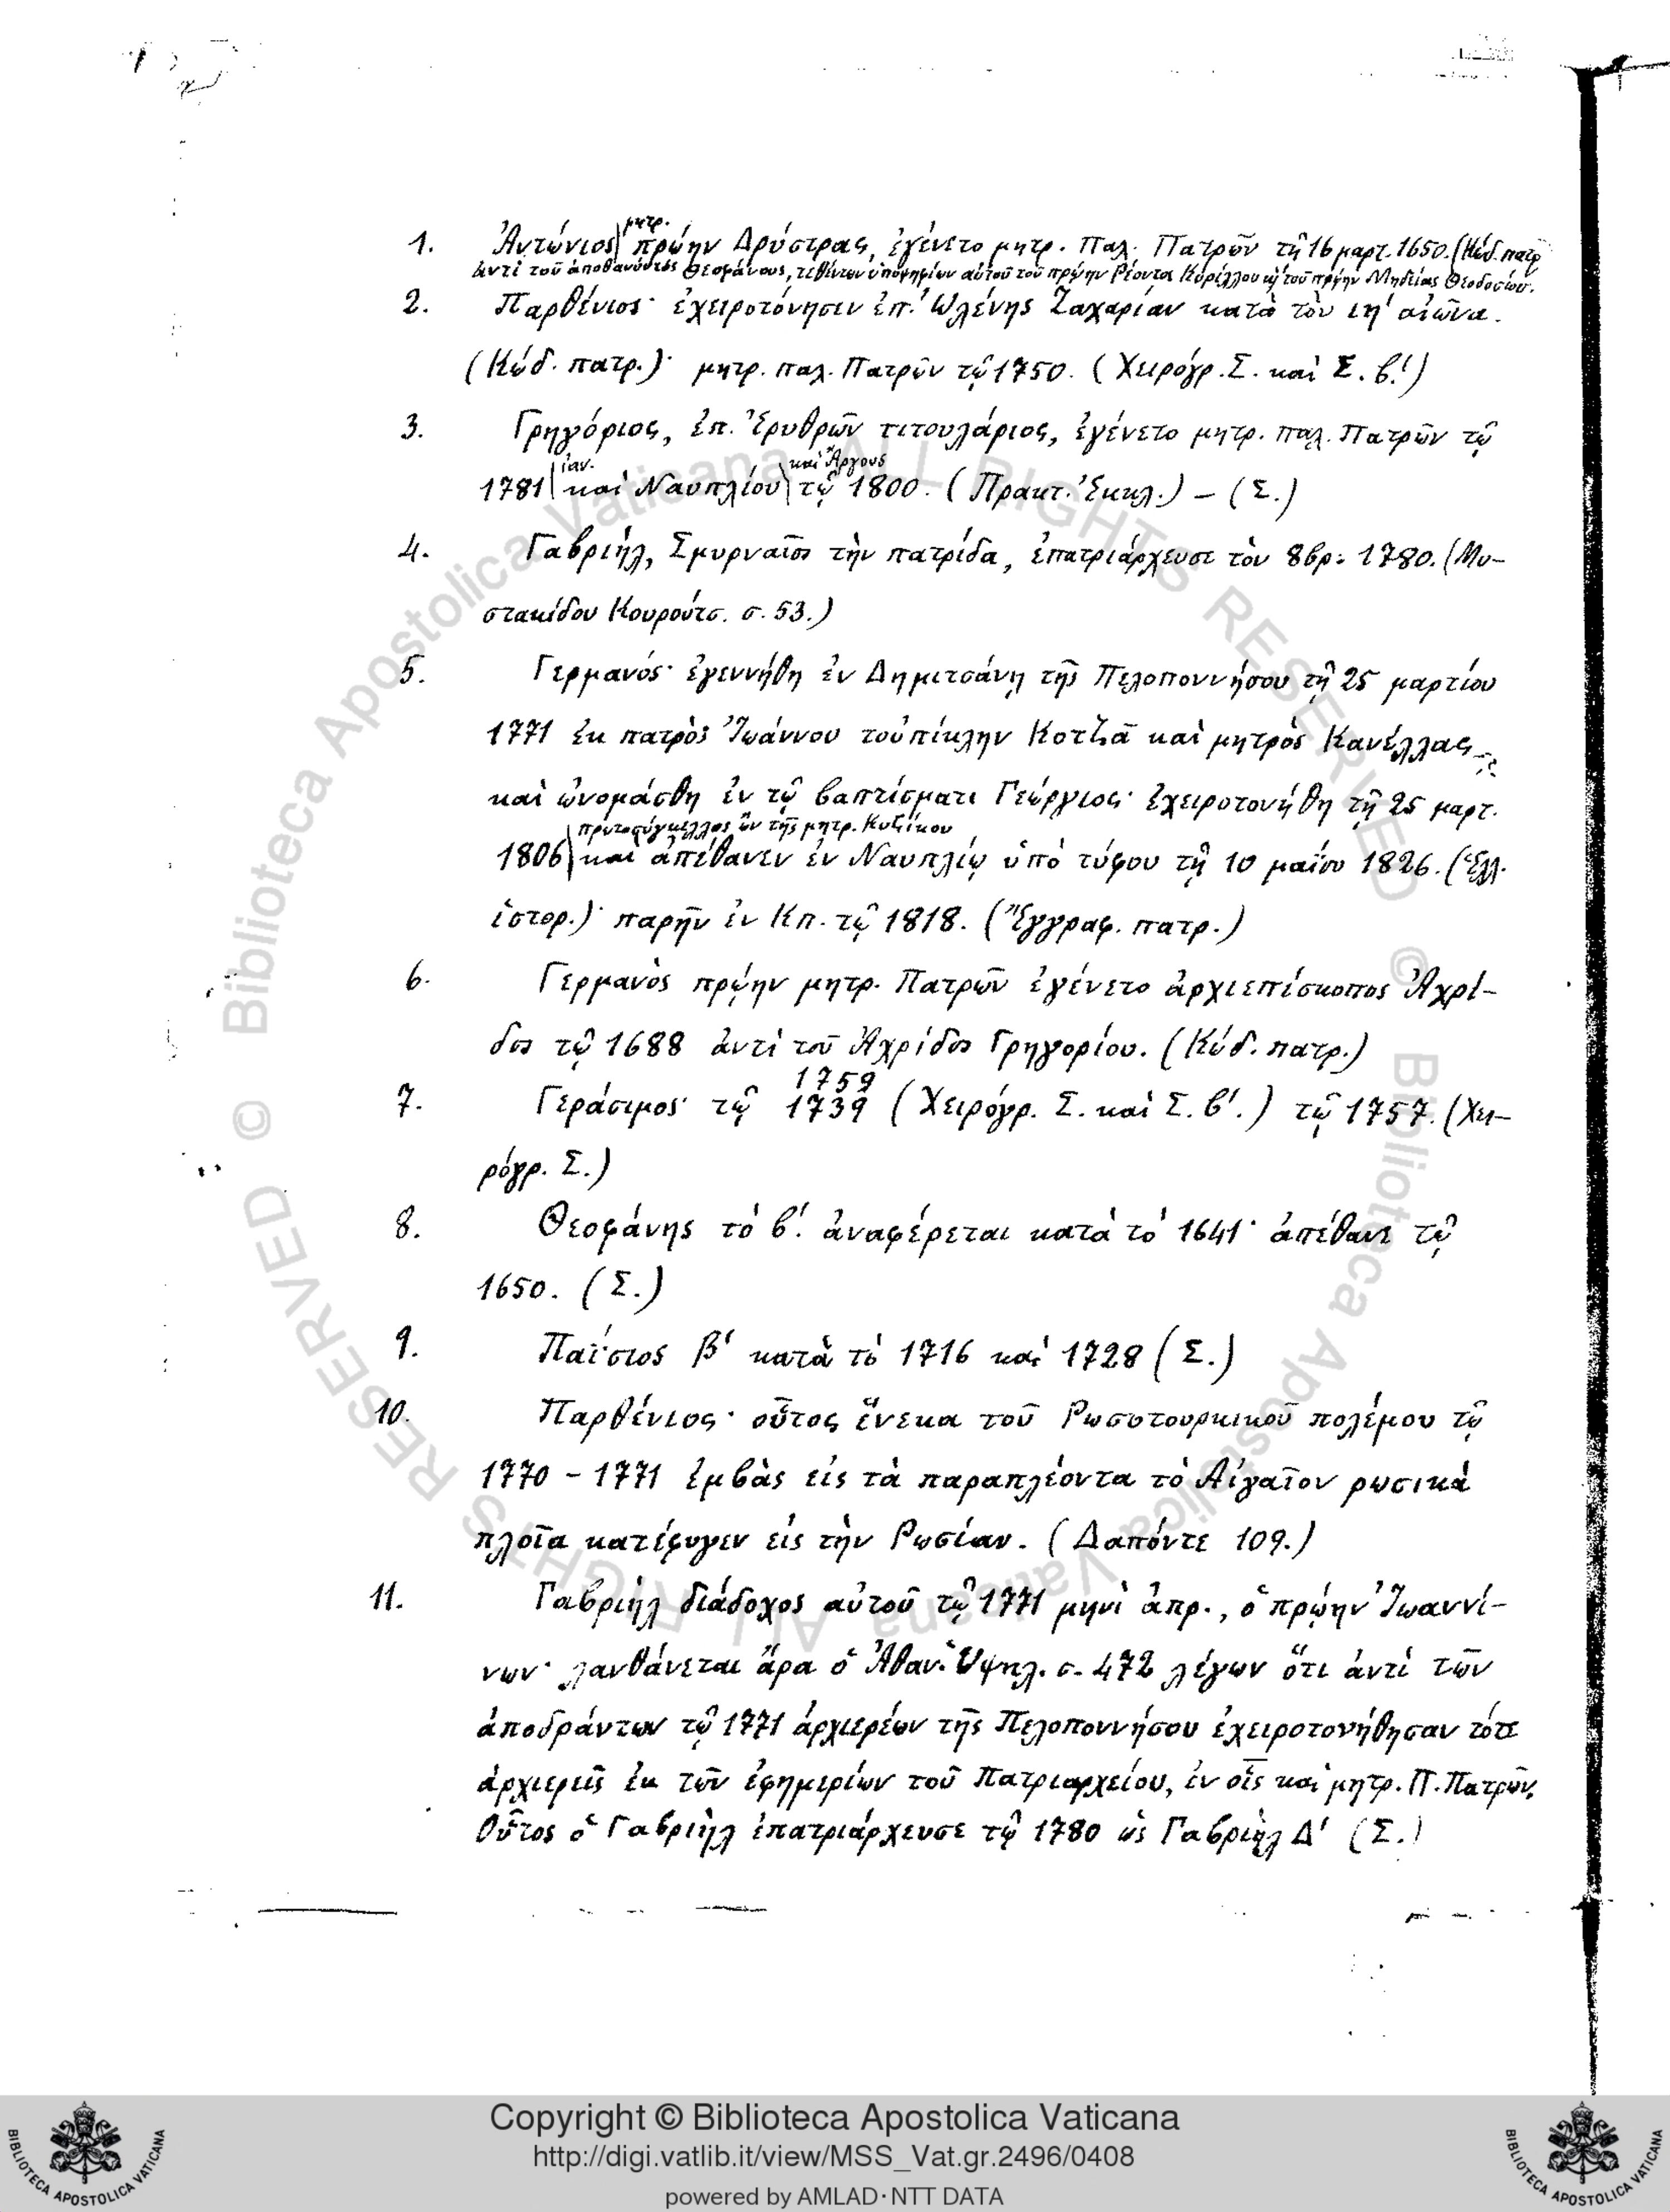 1. Ἀντώνιος μητρ. πρώην Δρύστρας, ἐγένετο μητρ. Παλ. Πατρῶν τῇ 16 μαρτ. 1650. (Κώδ. πατρ
ἀντὶ τοῦ ἀποθανόντος Θεοφάνους, τεθέντων ὑποψηφίων αὐτοῦ τοῦ πρώην Ῥέοντος Κυρίλλου κὴ τοῦ πρώην Μηδείας Θεοδοσίου.
2. Παρθένιος· ἐχειροτόνησεν ἐπ. Ὠλένης Ζαχαρίαν κατὰ τὸν ιη' αἰῶνα.
(Κώδ. πατρ.)· μητρ. παλ. Πατρῶν τῷ 1750. (Χειρόγρ. Σ. καὶ Σ. β.')
3. Γρηγόριος, ἐπ. Ἐρυθρῶν τιτουλάριος, ἐγένετο μητρ. παλ. Πατρῶν τῷ
1781 ἰαν. καὶ Ναυπλίου καὶ Ἄργους τῷ 1800. (Πρακτ. Ἐκκλ.) – (Σ.)
4. Γαβριήλ, Σμυρναῖος τὴν πατρίδα, ἐπατριάρχευσε τὸν 8βρ: 1780. (Μυ-
στακίδου Κουρούτσ. σ. 53.)
5. Γερμανός· ἐγεννήθη ἐν Δημιτσάνῃ τῆς Πελοποννήσου τῇ 25 μαρτίου
1771 ἐκ πατρὸς Ἰωάννου τοὐπίκλην Κοτζιᾶ καὶ μητρὸς Κανέλλας
καὶ ὠνομάσθη ἐν τῷ βαπτίσματι Γεώργιος· ἐχειροτονήθη τῇ 25 μαρτ.
1806 πρωτοσύγκελλος ὢν τῆς μητρ. Κυζίκου καὶ ἀπέθανεν ἐν Ναυπλίῳ ὑπὸ τύφου τῇ 10 μαΐου 1826. (Ἑλλ.
ἱστορ.)· παρῆν ἐν Κπ. τῷ 1818. (Ἔγγραφ. πατρ.)
6. Γερμανὸς πρώην μητρ. Πατρῶν ἐγένετο ἀρχιεπίσκοπος Ἀχρί-
δος τῷ 1688 ἀντὶ τοῦ Ἀχρίδος Γρηγορίου. (Κώδ. πατρ.)
7. Γεράσιμος· τῷ 1739 1759 (Χειρόγρ. Σ. καὶ Σ. β'.) τῷ 1757. (Χει-
ρόγρ. Σ.)
8. Θεοφάνης τὸ β'. ἀναφέρεται κατὰ τὸ 1641· ἀπέθανε τῷ
1650. (Σ.)
9. Παΐσιος β' κατὰ τὸ 1716 καὶ 1728 (Σ.)
10. Παρθένιος· οὗτος ἕνεκα τοῦ Ρωσοτουρκικοῦ πολέμου τῷ
1770 – 1771 ἐμβὰς εἰς τὰ παραπλέοντα τὸ Αἰγαῖον ρωσικὰ
πλοῖα κατέφυγεν εἰς τὴν Ρωσίαν. (Δαπόντε 109.)
11. Γαβριὴλ διάδοχος αὐτοῦ τῷ 1771 μηνὶ ἀπρ., ὁ πρώην Ἰωαννί-
νων· λανθάνεται ἄρα ὁ Ἀθαν. Ὑψηλ. σ. 472 λέγων ὅτι ἀντὶ τῶν
ἀποδράντων τῷ 1771 ἀρχιερέων τῆς Πελοποννήσου ἐχειροτονήθησαν τότε
ἀρχιερεῖς ἐκ τῶν ἐφημερίων τοῦ Πατριαρχείου, ἐν οἷς καὶ μητρ. Π. Πατρῶν.
Οὗτος ὁ Γαβριὴλ ἐπατριάρχευσε τῷ 1780 ὡς Γαβριὴλ Δ' (Σ.)
© Biblioteca Apostolica Vaticana ALL RIGHTS RESERVED
© Biblioteca Apostolica Vaticana ALL RIGHTS RESERVED
BIBLIOTECA APOSTOLICA VATICANA
Copyright © Biblioteca Apostolica Vaticana
http://digi.vatlib.it/view/MSS_Vat.gr.2496/0408
powered by AMLAD·NTT DATA
BIBLIOTECA APOSTOLICA VATICANA